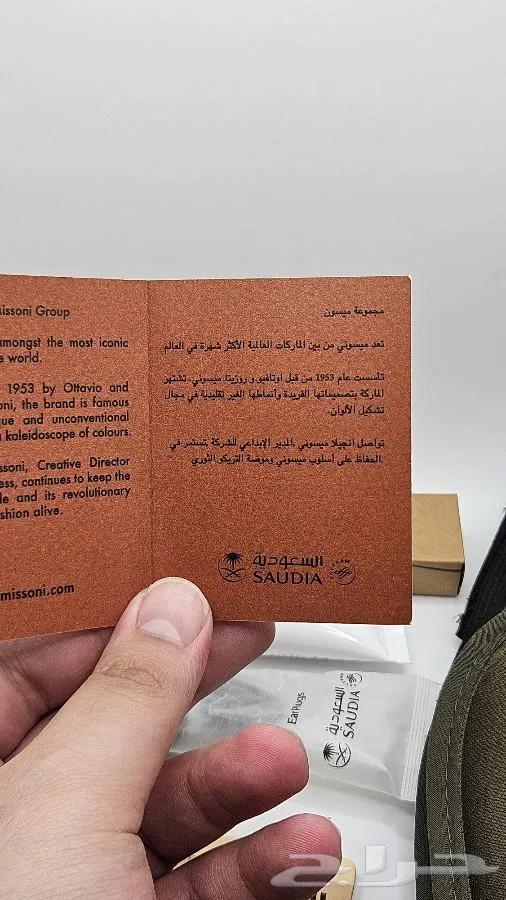 issoni Group
amongst the most iconic
e world.
1953 by Ottavio and
oni, the brand is famous
ue and unconventional
kaleidoscope of colours.
issoni, Creative Director
ess, continues to keep the
le and its revolutionary
ashion alive.
missoni.com
مجموعة ميسون
تعد ميسوني من بين الماركات العالمية الأكثر شهرة في العالم
تأسست عام 1953 من قبل اوتافيو و روزيتا ميسوني. تشتهر
الماركة بتصميماتها الفريدة وأنماطها الغير تقليدية في مجال
تشكيل الألوان.
تواصل أنجيلا ميسوني ,المدير الإبداعي للشركة ,تستمر في
الحفاظ على أسلوب ميسوني وموضة التريكو الثوري.
السعودية
SAUDIA
EarPlugs
السعودية
SAUDIA
حراج